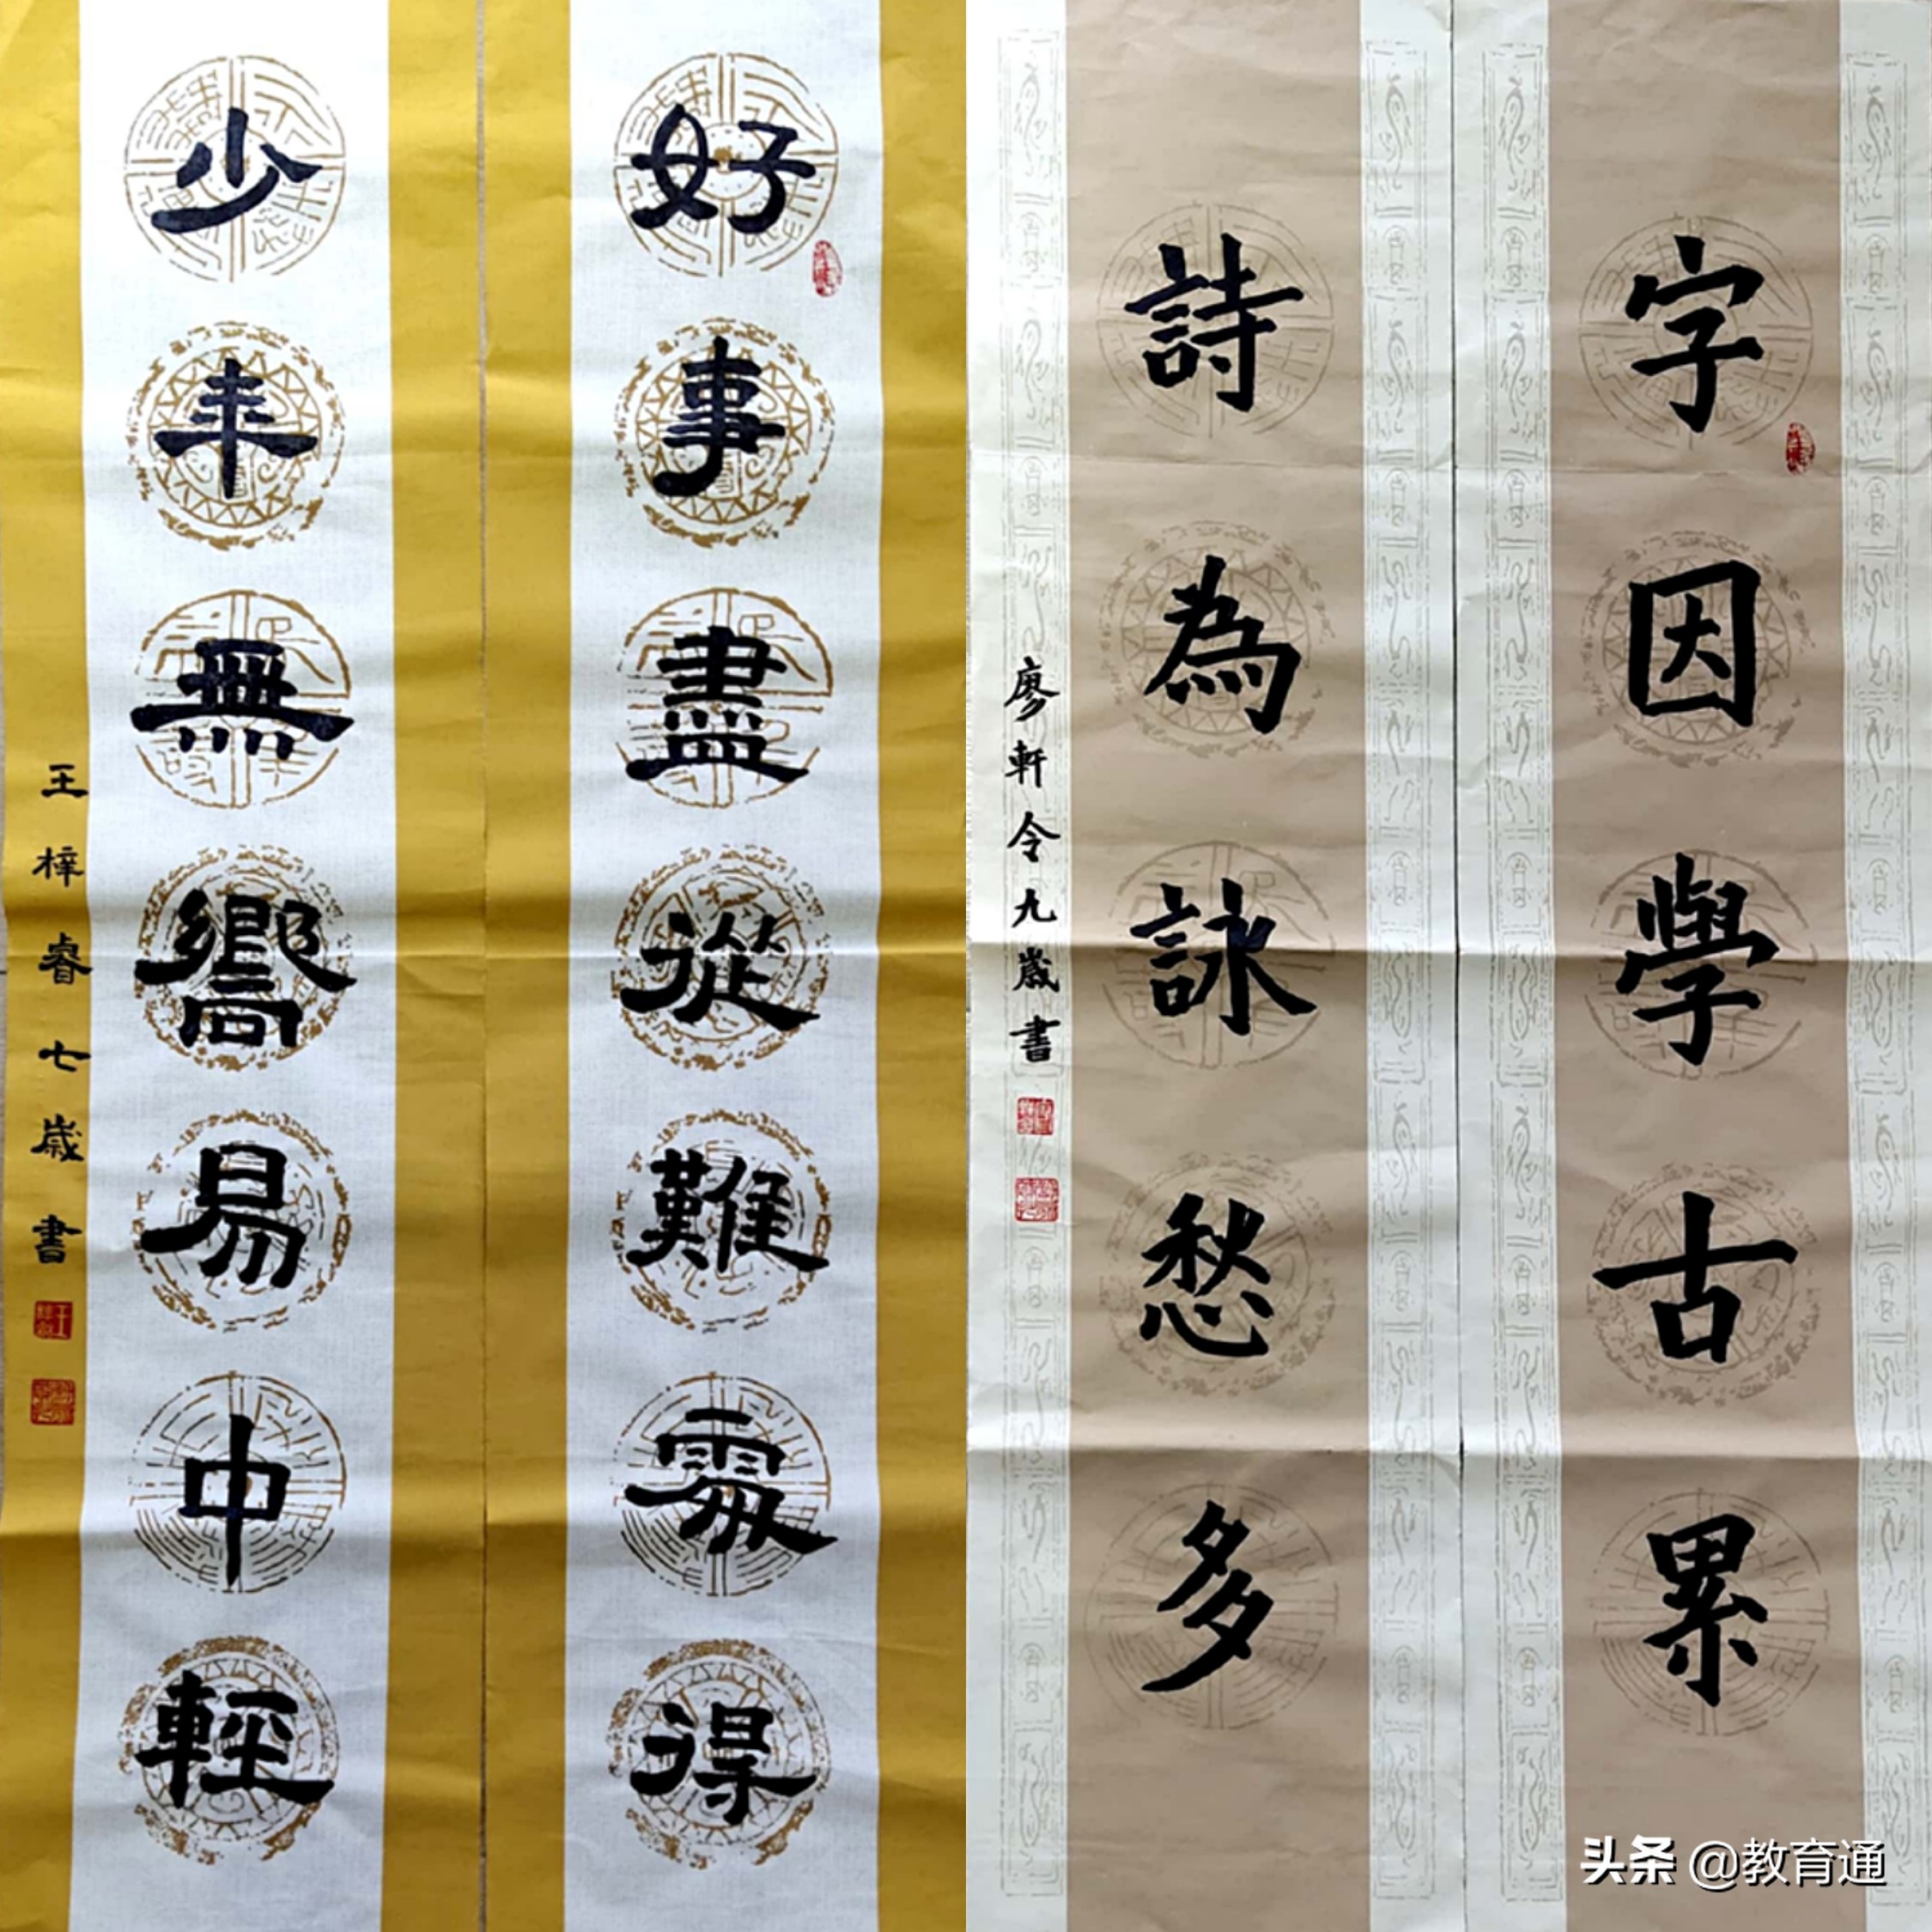 好事盡從難處得
少年無嚮易中輕
王梓睿七歲書
字因學古累
詩為詠愁多
廖軒令九歲書
头条 @教育通